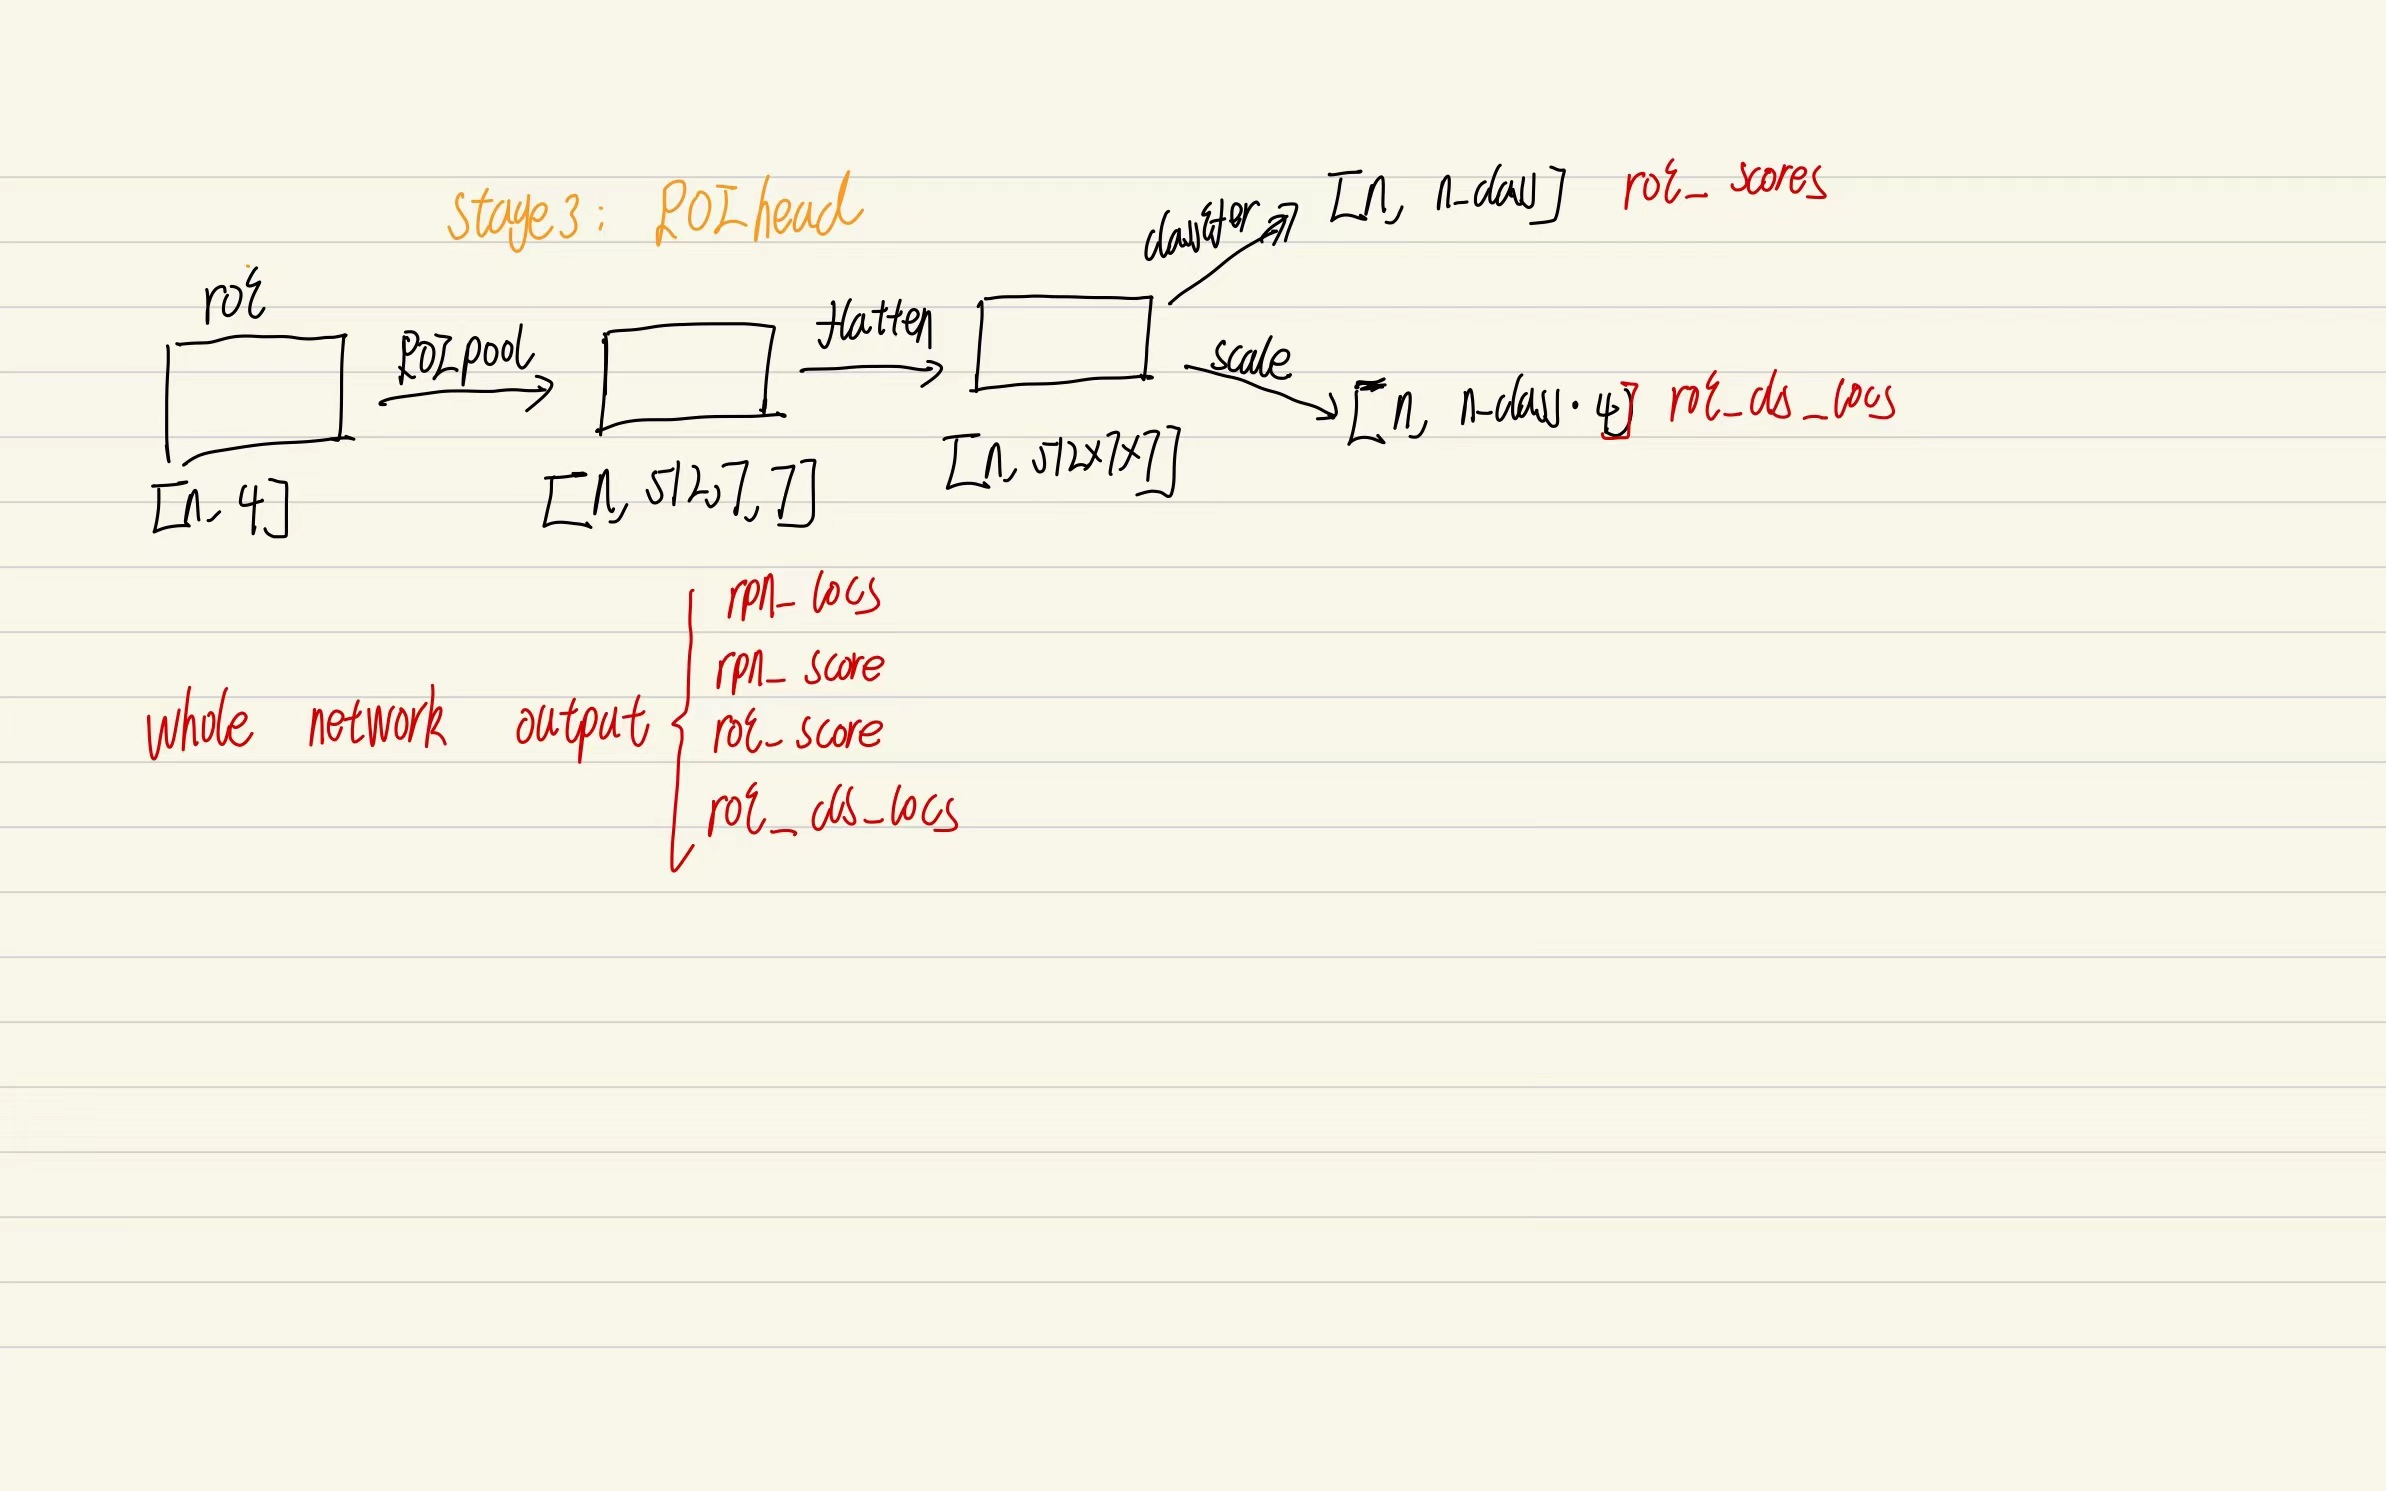 stage3: ROIhead
roi
ROIpool
flatten
classifier
scale
[n, n_class] roi_scores
[n, n_class·4] roi_cls_locs
[n, 4]
[n, 512, 7, 7]
[n, 512×7×7]
whole network output
rpn_locs
rpn_score
roi_score
roi_cls_locs